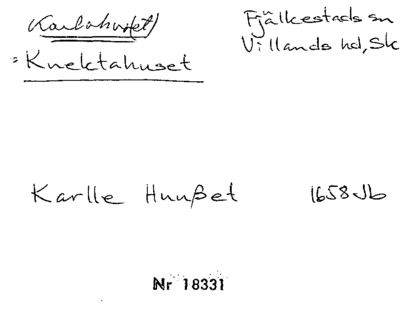 Karlahuset)
= Knektahuset
Fjälkestads sn
Villands hd, Sk
Karlle Hunßet 1658 Jb
Nr 18331